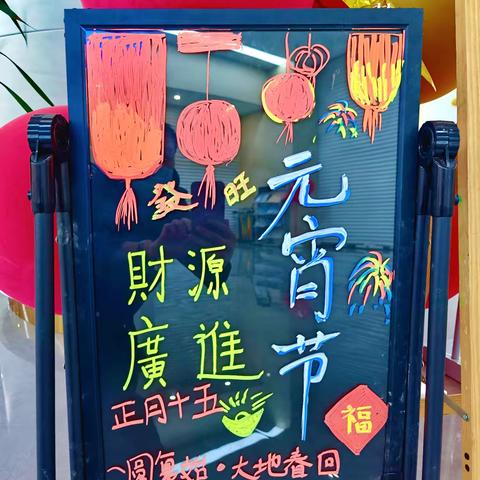 發 旺
元宵节
財源
廣進
正月十五
福
一圓复始·大地春回